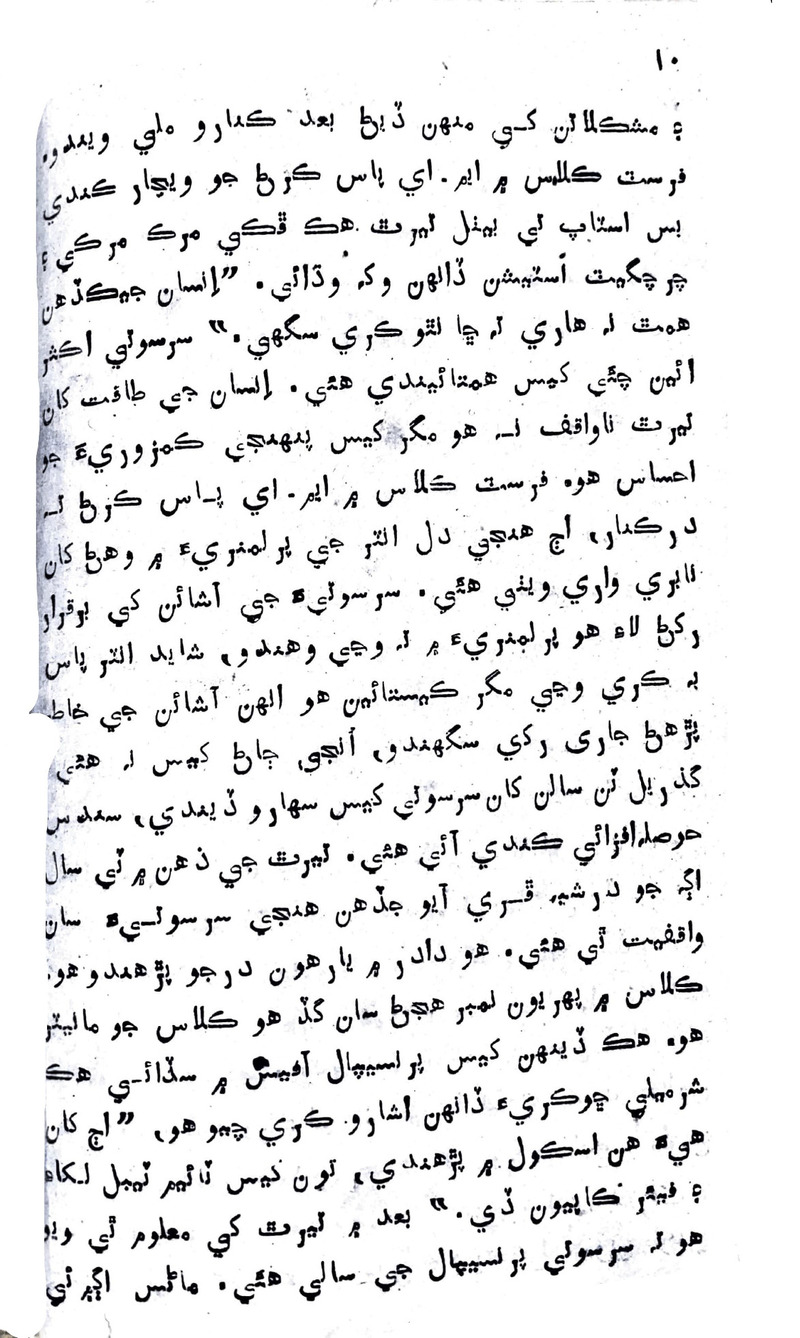 ۱۰
۽ مشڪلاتن کي منهن ڏيڻ بعد ڪنارو ملي ويندو.
فرسٽ ڪلاس ۾ ايم. اي پاس ڪرڻ جو ويچار ڪندي
بس اسٽاپ تي بيٺل تيرٿ هڪ ڦڪي مرڪ مرڪي ۽
چرچگيٽ اُسٽيشن ڏانهن وک وڌائي. ”اِنسان جيڪڏهن
همٿ نہ هاري تہ ڇا نٿو ڪري سگهي.“ سرسوتي اڪثر
ائين چئي کيس همٿائيندي هئي. اِنسان جي طاقت کان
تيرٿ ناواقف نہ هو مگر کيس پنهنجي ڪمزوريءَ جو
احساس هو. فرسٽ ڪلاس ۾ ايم. اي پاس ڪرڻ تہ
درڪنار، اڄ هنجي دل انٽر جي پرلمنريءَ ۾ وهڻ کان
نابري واري ويٺي هئي. سرسوتيءَ جي آشائن کي برقرار
رکڻ لاءِ هو پرلمنريءَ ۾ تہ وڃي وهندو، شايد انٽر پاس
بہ ڪري وڃي مگر ڪيستائين هو انهن آشائن جي خاطر
پڙهڻ جاري رکي سگهندو، اُنجي ڄاڻ کيس نہ هئي.
گذريل ٽن سالن کان سرسوتي کيس سهارو ڏيندي، سندس
حوصلہ‌افزائي ڪندي آئي هئي. تيرٿ جي ذهن ۾ ٽي سال
اڳ جو درشيہ ڦري آيو جڏهن هنجي سرسوتيءَ سان
واقفيت ٿي هئي. هو دادر ۾ يارهون درجو پڙهندو هو.
ڪلاس ۾ پهريون نمبر هجڻ سان گڏ هو ڪلاس جو مانيٽر
هو. هڪ ڏينهن کيس پرنسيپال آفيس ۾ سڏائي هڪ
شرميلي ڇوڪريءَ ڏانهن اشارو ڪري چيو هو، ”اڄ کان
هيءَ هن اسڪول ۾ پڙهندي، تون کيس ٽائيم ٽيبل لکاءِ
۽ فيئر ڪاپيون ڏي.“ بعد ۾ تيرٿ کي معلوم ٿي ويو
هو تہ سرسوتي پرنسيپال جي سالي هئي. ماڻس اڳي ئي